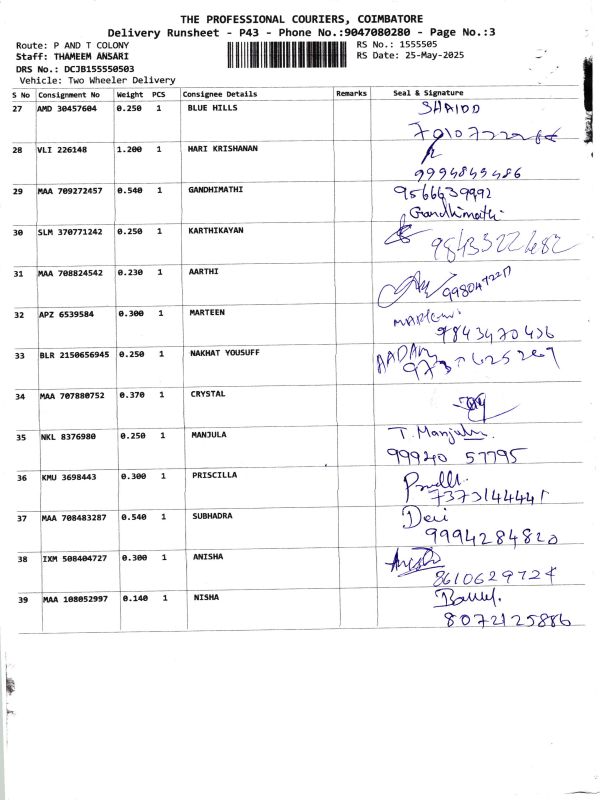 THE PROFESSIONAL COURIERS, COIMBATORE
Delivery Runsheet - P43 - Phone No.:9047080280 - Page No.:3
Route: P AND T COLONY
RS No.: 1555505
Staff: THAMEEM ANSARI
RS Date: 25-May-2025
DRS No.: DCJB155550503
Vehicle: Two Wheeler Delivery
S No Consignment No Weight PCS Consignee Details Remarks Seal & Signature
27 AMD 30457604 0.250 1 BLUE HILLS
28 VLI 226148 1.200 1 HARI KRISHANAN
9994849486
29 MAA 709272457 0.540 1 GANDHIMATHI 9566639992
Gandhimathi
30 SLM 370771242 0.250 1 KARTHIKAYAN
9843322482
31 MAA 708824542 0.230 1 AARTHI
32 APZ 6539584 0.300 1 MARTEEN
9843470436
33 BLR 2150656945 0.250 1 NAKHAT YOUSUFF AADAM
34 MAA 707880752 0.370 1 CRYSTAL
35 NKL 8376980 0.250 1 MANJULA T. Manjula.
99940 57795
36 KMU 3698443 0.300 1 PRISCILLA
7373144441
37 MAA 708483287 0.540 1 SUBHADRA Devi
9994284820
38 IXM 508404727 0.300 1 ANISHA Anisha
8610629724
39 MAA 108052997 0.140 1 NISHA
8072125886